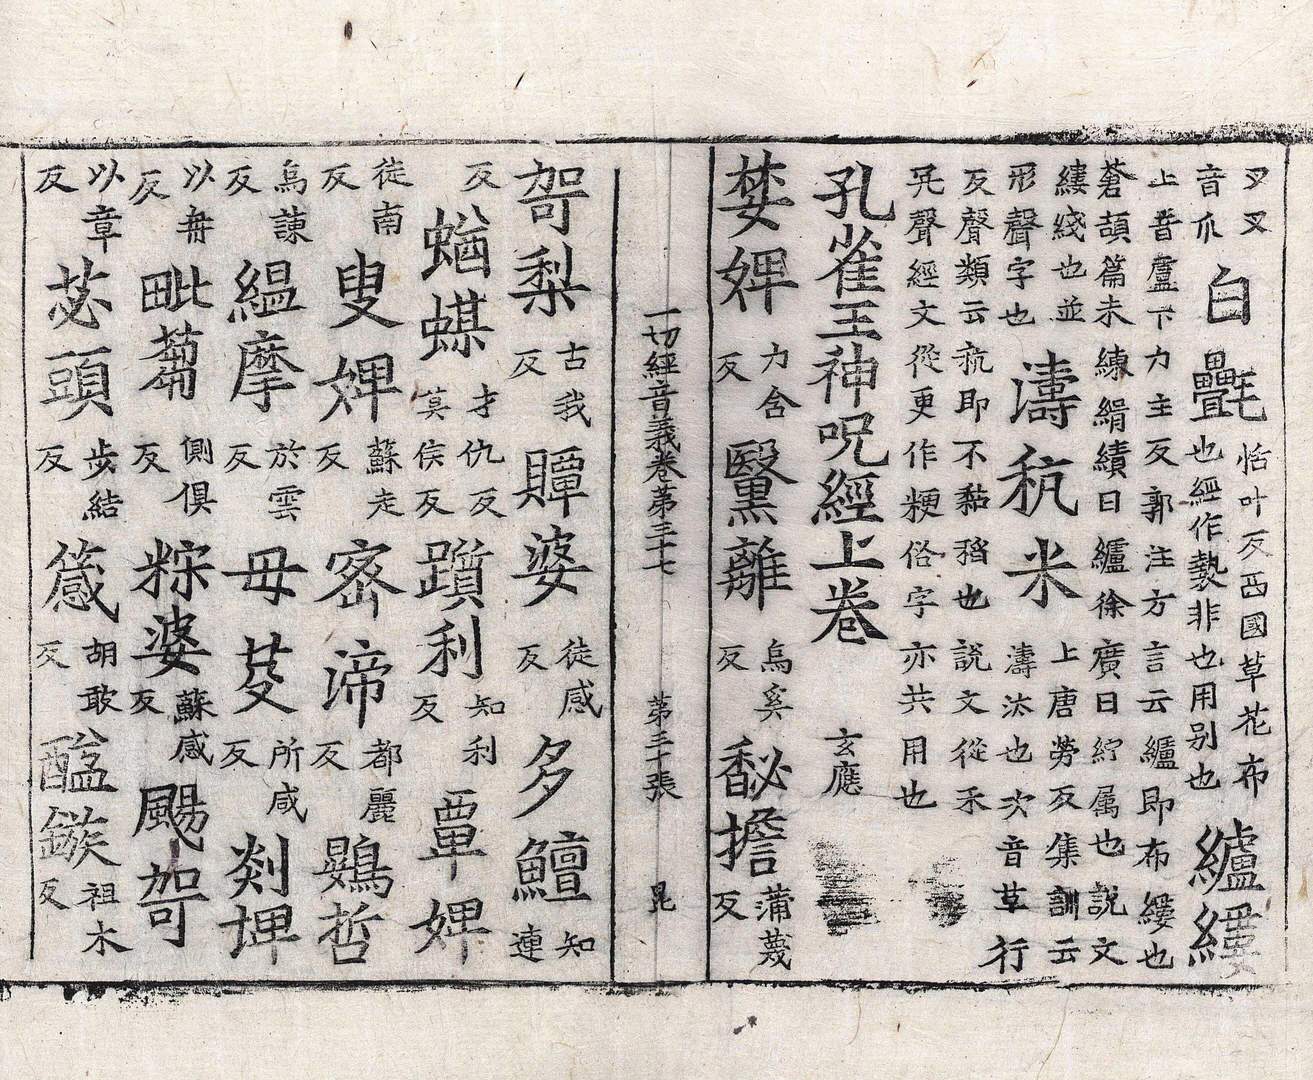 叉叉
音爪
白㲲
恬叶反西國草花布
也經作褺非也用别也
纑縷
上音盧下力主反郭注方言云纑即布縷也
蒼頡篇未練絹績曰纑徐廣曰紵属也説文
縷綫也並
形聲字也
濤秔米
上唐勞反集訓云
濤汰也次音草行
反聲類云秔即不黏稻也説文從禾
亢聲經文從更作粳俗字亦共用也
孔雀王神呪經上卷 玄應
婪婢 力含反 黳離 烏奚反 馝擔 蒲蔑反
一切經音義卷第三十七 第三十張 昆
哿梨 古我反 贉婆 徒感反 多鱣 知連
反 蝤䗋 才仇反莫侯反 躓利 知利反 覃婢
徒南反 叟婢 蘇走反 密渧 都麗反 鷃哲
烏諫反 縕摩 於雲反 毋芟 所咸反 剡埤
以冉反 毗蒭 側俱反 粽婆 蘇感反 颺哿
以章反 苾頭 步結反 胡敢反 醖鏃 祖木反